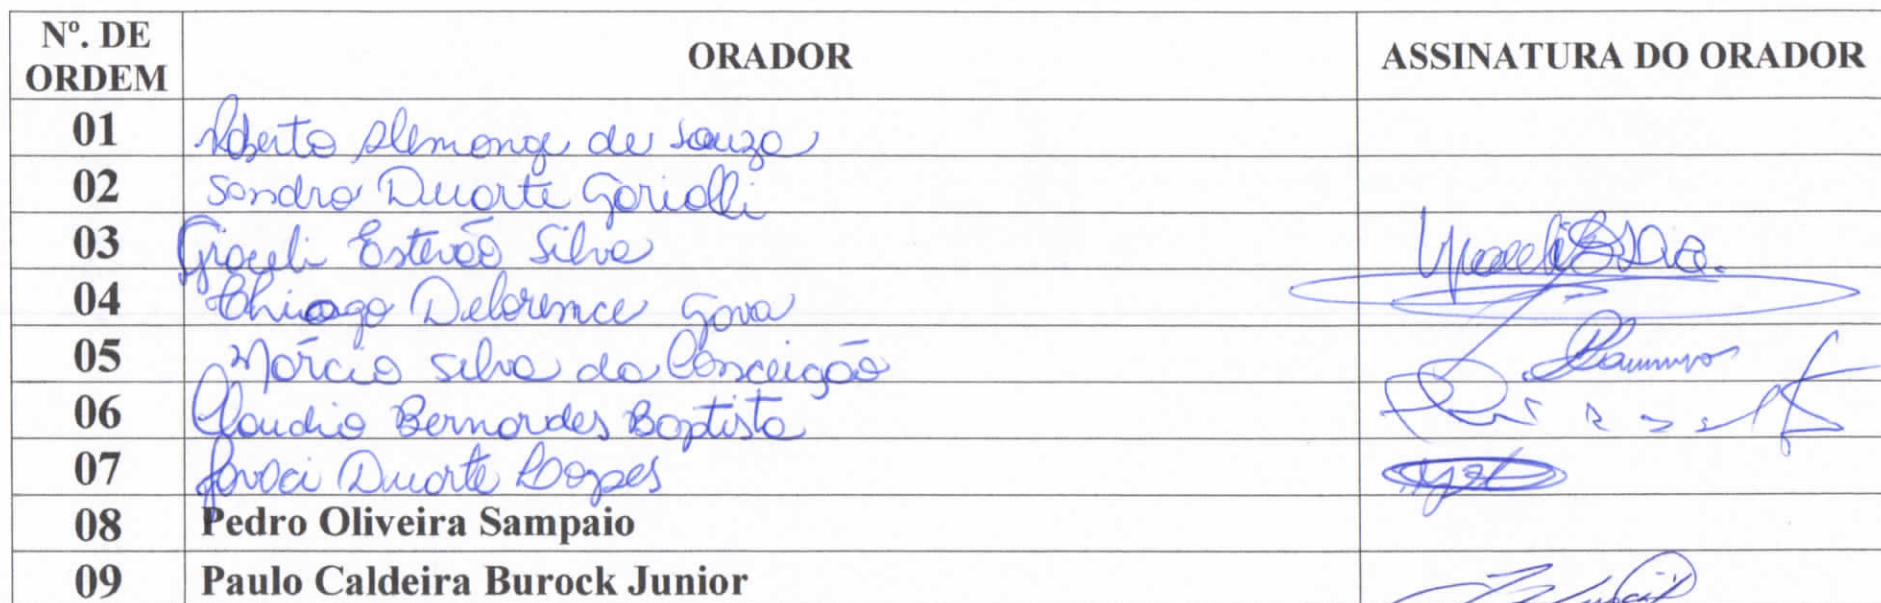 Nº. DE ORDEM ORADOR ASSINATURA DO ORADOR
01 Roberto Alemonge de Souza
02 Sandro Duarte Gorialli
03 Graceli Estevão Silva
04 Thiago Delorence Gava
05 Márcio Silva da Conceição
06 Claudio Bernardes Baptista
07 Jovaci Duarte Lopes
08 Pedro Oliveira Sampaio
09 Paulo Caldeira Burock Junior